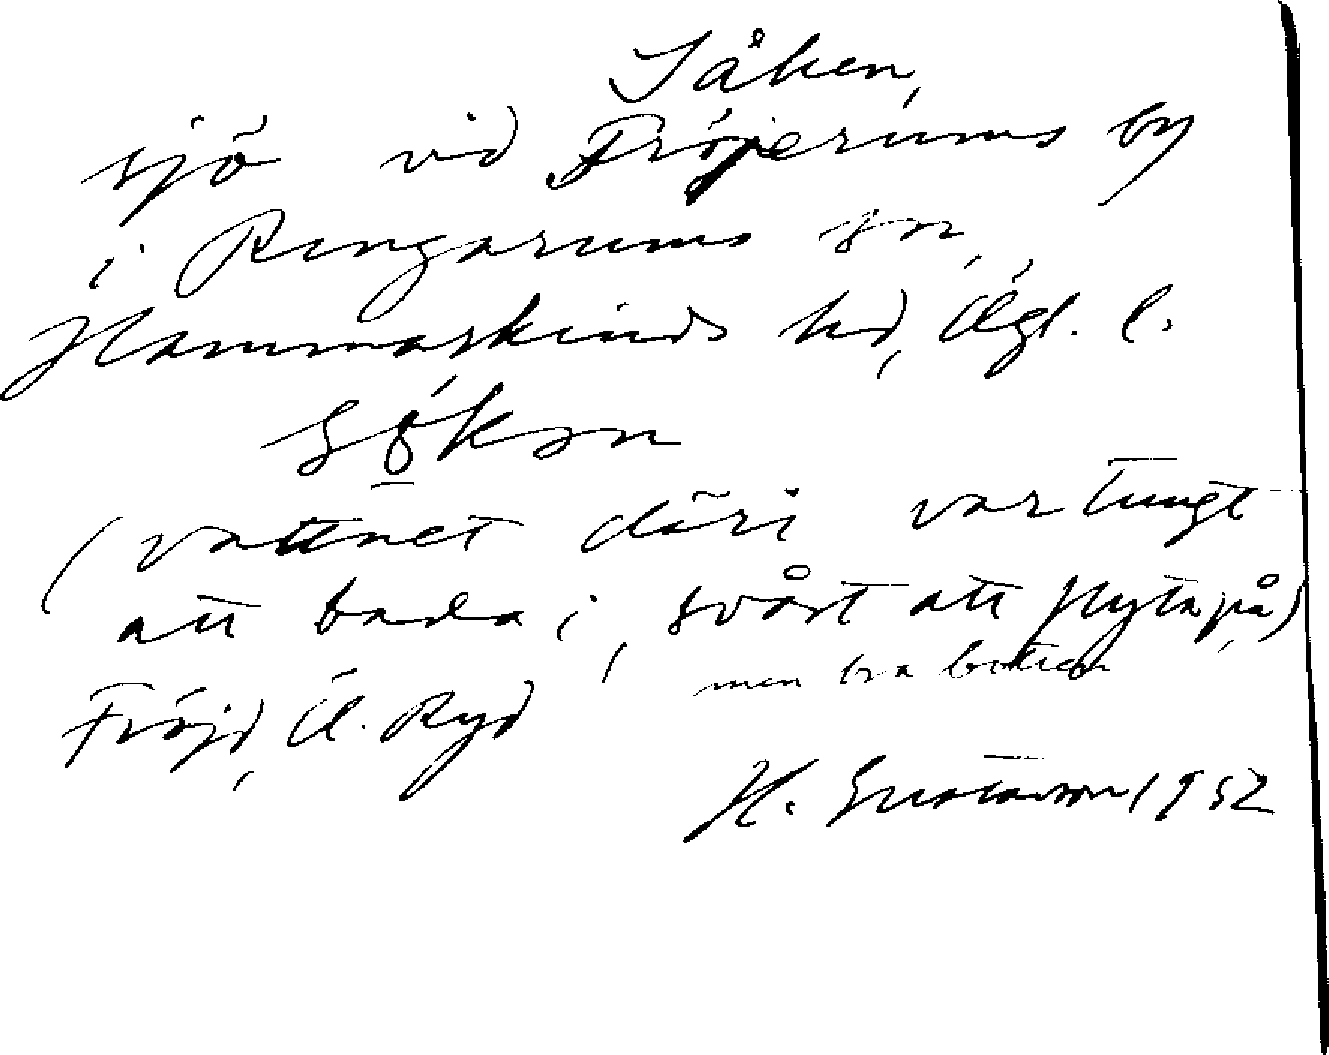 Såken,
sjö vid Fröjerums by
i Ringarums sn,
Hammarkinds hd, Ögl. l.
sö̲kən
(vattnet däri var tungt
att bada i, svårt att flyta på,)
men bra botten
Fröjd, Ö. Ryd
H. Gustavson 1952